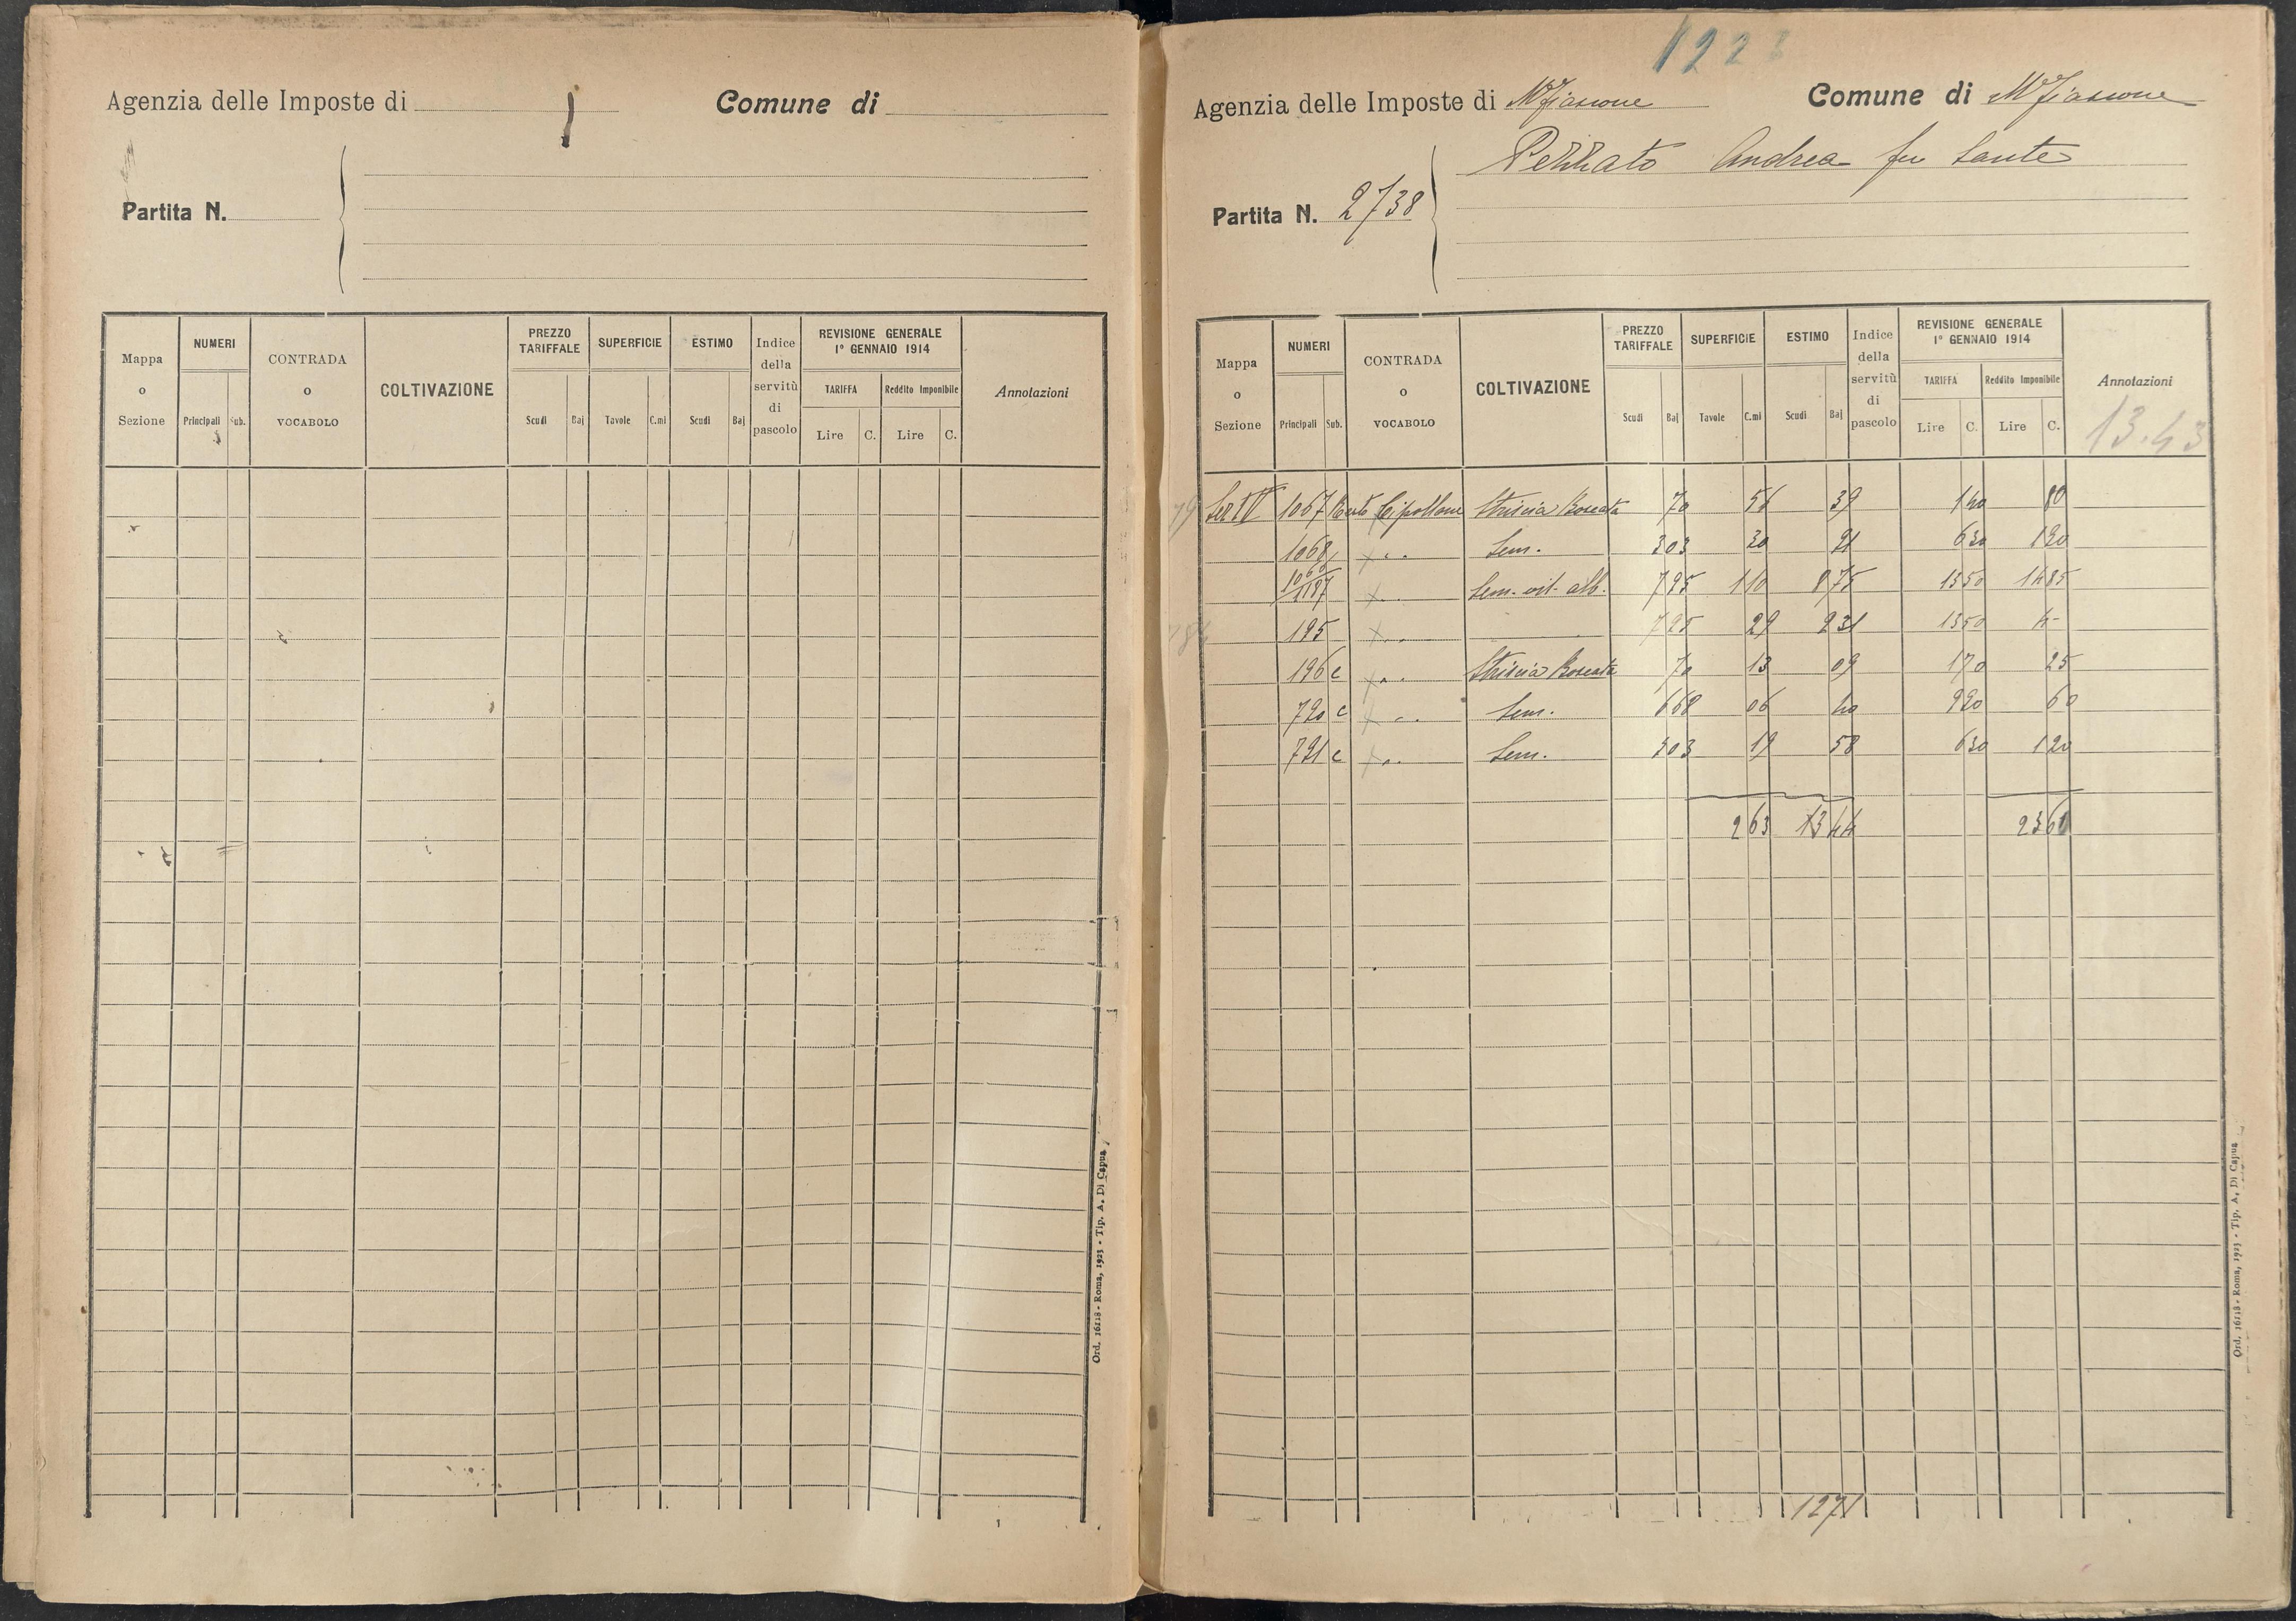 Agenzia delle Imposte di
Comune di
Partita N.
Mappa o Sezione
NUMERI
Principali Sub.
CONTRADA o VOCABOLO
COLTIVAZIONE
PREZZO TARIFFALE
Scudi Baj
SUPERFICIE
Tavole C.mi
ESTIMO
Scudi Baj
Indice della servitù di pascolo
REVISIONE GENERALE
1° GENNAIO 1914
TARIFFA Reddito Imponibile
Lire C. Lire C.
Annotazioni
Ord. 16118 - Roma, 1923 - Tip. A. Di Capua
1223
Agenzia delle Imposte di Mfiascone Comune di Mfiascone
Andrea fu Sante
Partita N. 2738
Mappa o Sezione
NUMERI
Principali Sub.
CONTRADA o VOCABOLO
COLTIVAZIONE
PREZZO TARIFFALE
Scudi Baj
SUPERFICIE
Tavole C.mi
ESTIMO
Scudi Baj
Indice della servitù di pascolo
REVISIONE GENERALE
1° GENNAIO 1914
TARIFFA Reddito Imponibile
Lire C. Lire C.
Annotazioni
13.43
79 Sez IV 1067 Cipollone Striscia Boscata 70 56 39 140 80
1068 " " Sem. 303 30 91 630 190
1187 " Sem. vit. alb. 795 110 875 1350 1485
195 " " 795 29 231 1350 4-
196 c " " Striscia Boscata 70 13 09 170 25
720 c " " Sem. 668 06 40 990 60
721 c " " Sem. 303 19 58 630 120
263 1344 2360
1271
Ord. 16118 - Roma, 1923 - Tip. A. Di Capua